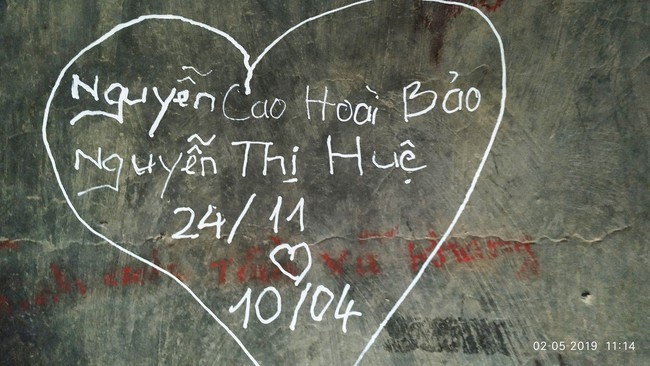 Nguyễn Cao Hoài Bảo
Nguyễn Thị Huệ
24/11
10/04
02-05-2019 11:14